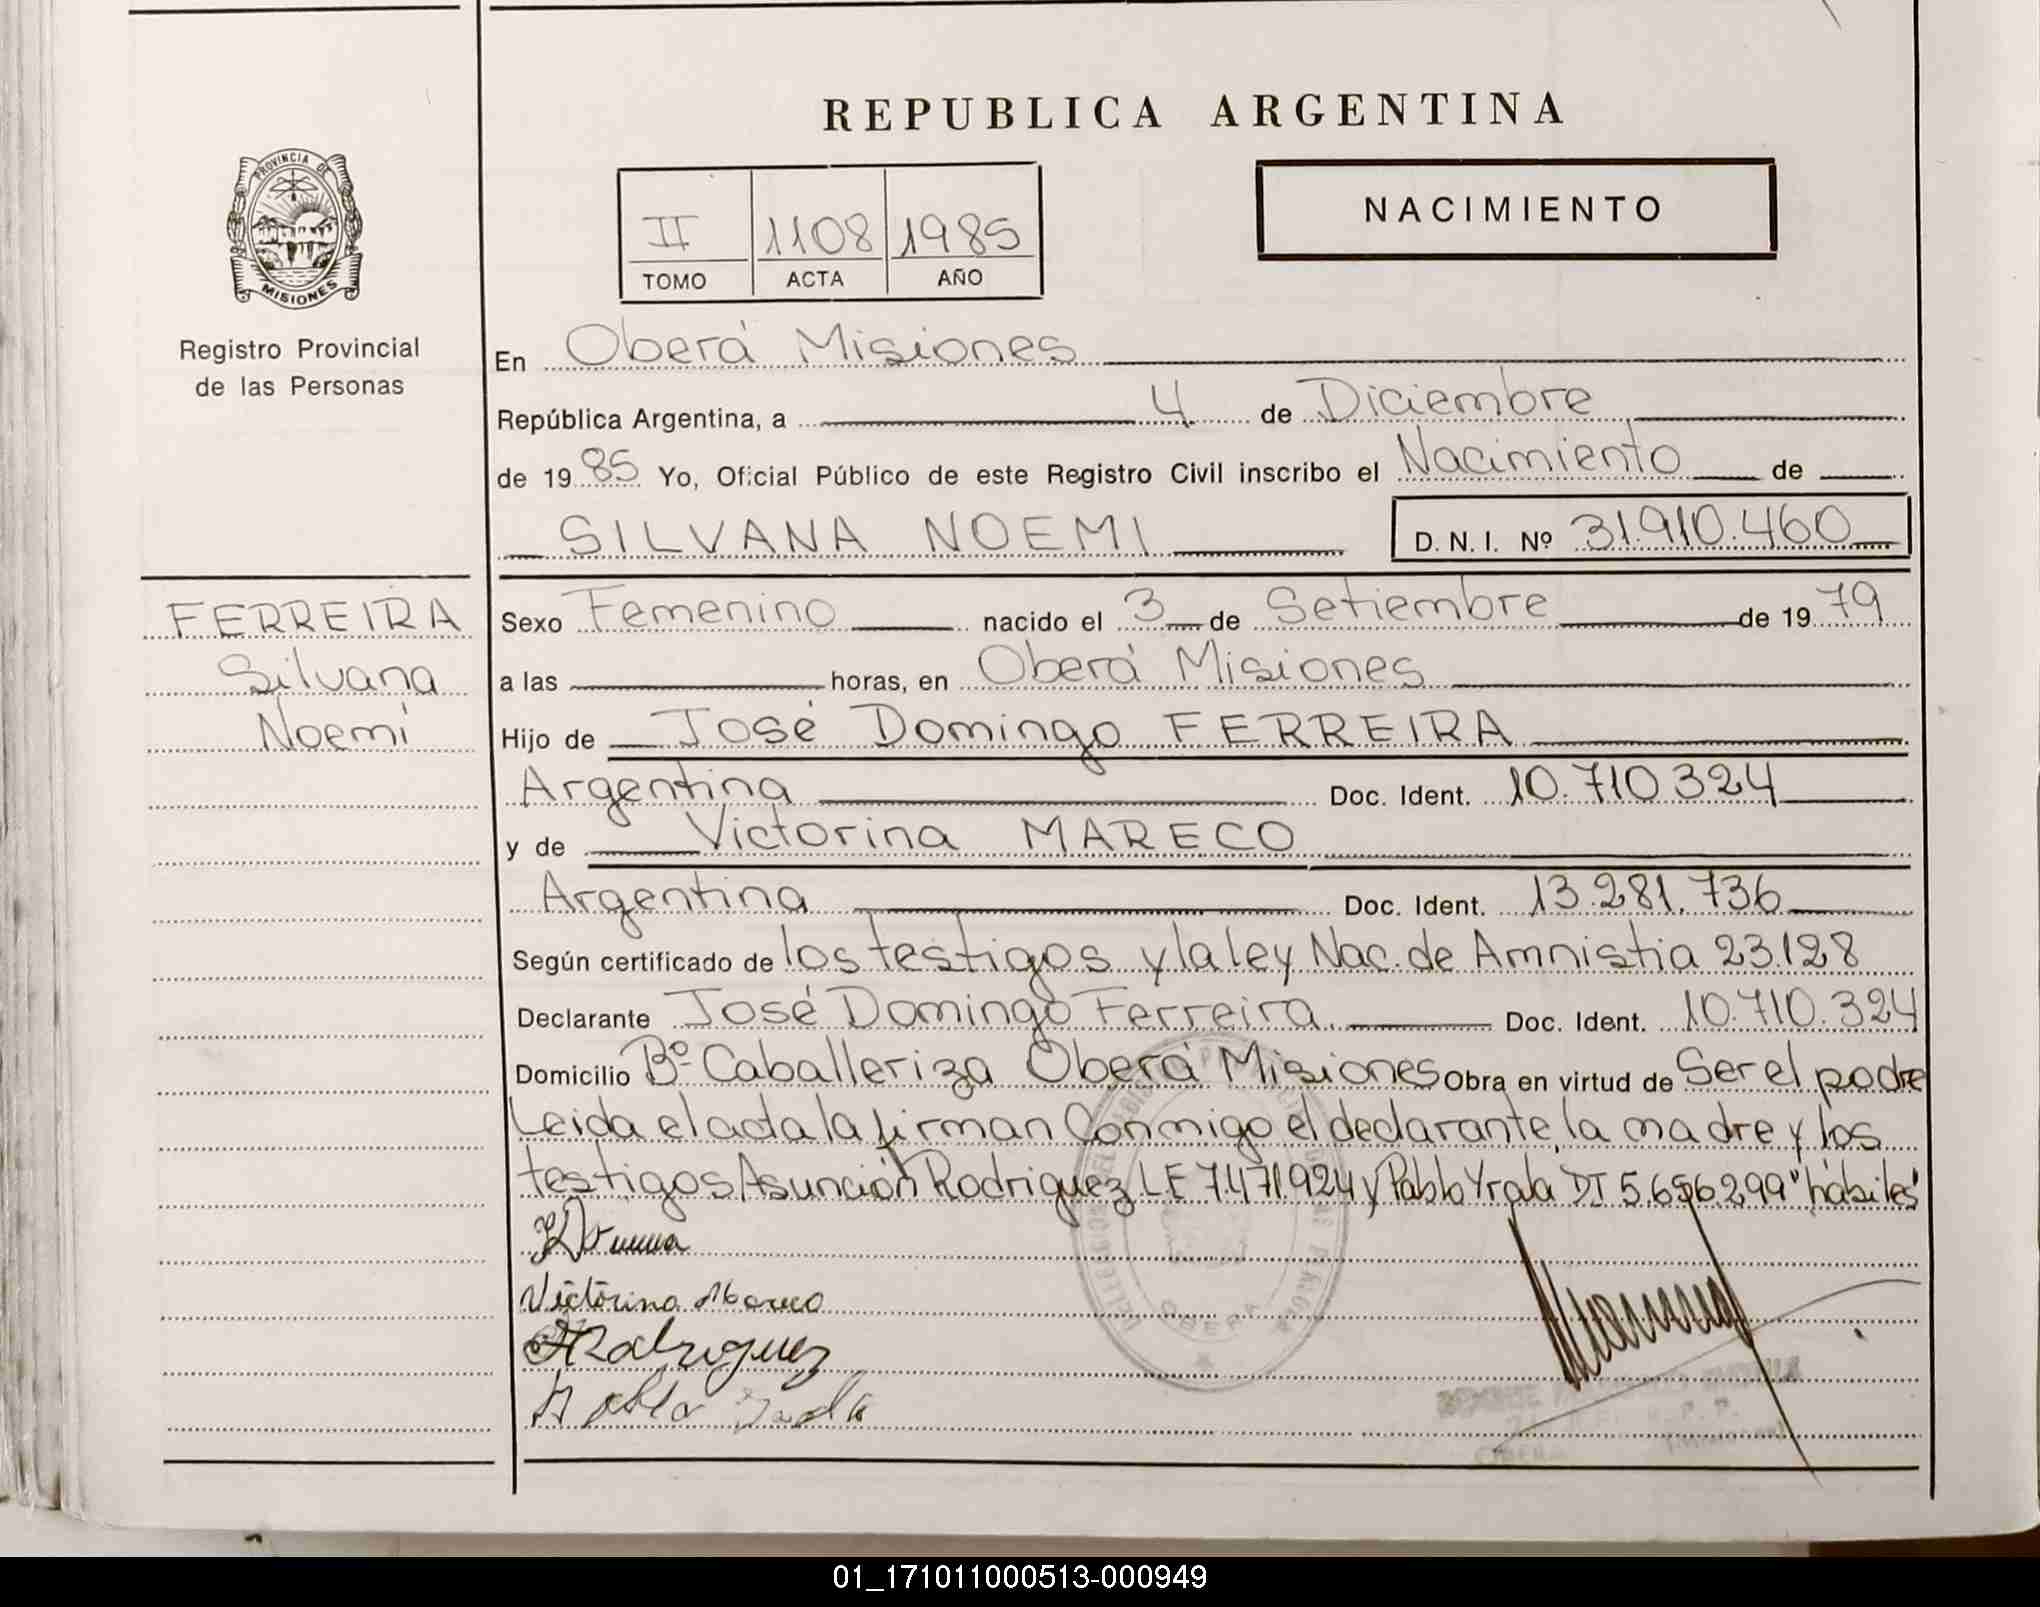 REPUBLICA ARGENTINA
PROVINCIA DE MISIONES
Registro Provincial
de las Personas
II 1108 1985
TOMO ACTA AÑO
NACIMIENTO
En Oberá Misiones
República Argentina, a 4 de Diciembre
de 1985 Yo, Oficial Público de este Registro Civil inscribo el Nacimiento de
SILVANA NOEMI D. N. I. Nº 31.910.460
FERREIRA
Silvana
Noemí
Sexo Femenino nacido el 3 de Setiembre de 1979
a las horas, en Oberá Misiones
Hijo de José Domingo FERREIRA
Argentina Doc. Ident. 10.710.324
y de Victorina MARECO
Argentina Doc. Ident. 13.281.736
Según certificado de los testigos y la ley Nac. de Amnistia 23.128
Declarante José Domingo Ferreira Doc. Ident. 10.710.324
Domicilio Bº Caballeriza Oberá Misiones Obra en virtud de Ser el padre
Leida el acta la firman Conmigo el declarante, la madre y los
testigos Asunción Rodriguez LE 7.471.924 y Pablo Yrala DI 5.656.299 "hábiles"
Victorina Mareco
ARodriguez
OBERA
01_171011000513-000949